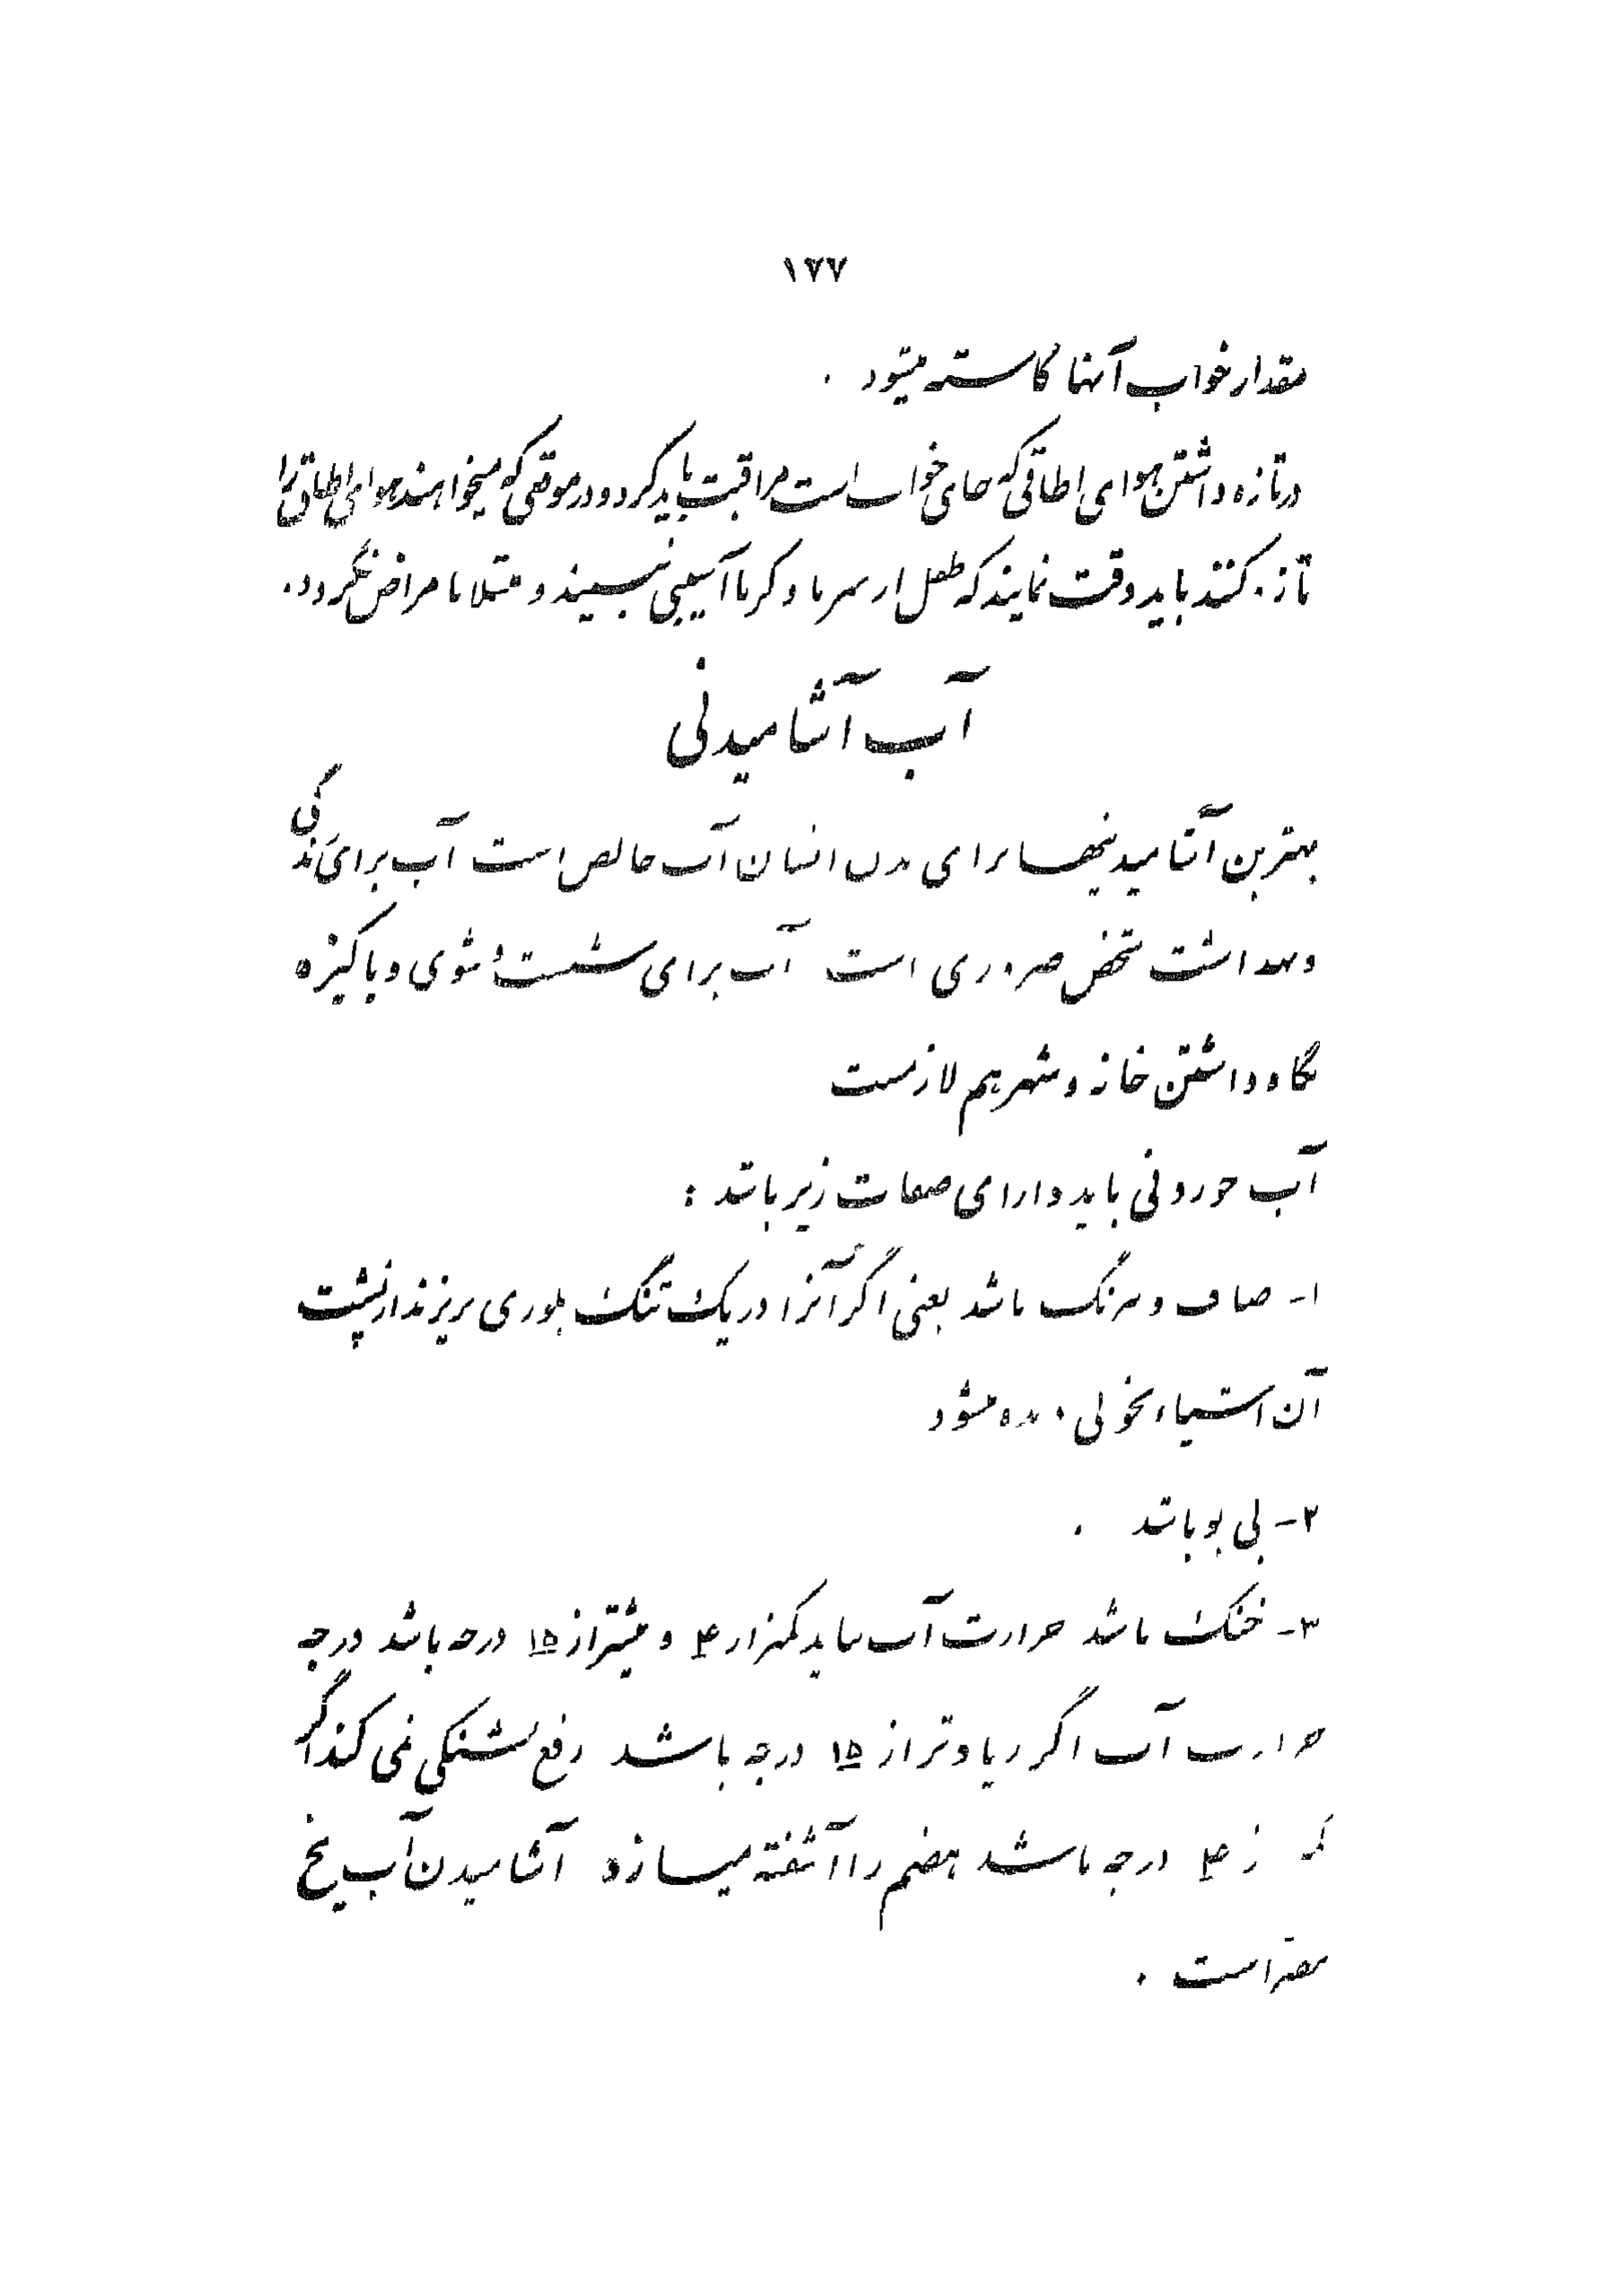 ۱۷۷
مقدار خواب آنها کاسته میشود .
در تازه داشتن هوای اطاقی که جای خواب است مراقبت باید کرد و در موقعی که میخواهند هوای اطاق را
تازه کنند باید دقت نمایند که طفل از سرما و گرما آسیبی نبیند و مبتلا بامراض نگردد .
آب آشامیدنی
بهترین آشامیدنیها برای بدن انسان آب خالص است آب برای زندگی
و بهداشت شخص ضروری است آب برای شست و شوی و پاکیزه
نگاه داشتن خانه و شهر هم لازمست
آب خوردنی باید دارای صفات زیر باشد :
۱- صاف و بیرنگ باشد یعنی اگر آنرا در یک تنگ بلوری بریزند از پشت
آن اشیاء بخوبی دیده میشود
۲- بی بو باشد .
۳- خنک باشد حرارت آب نباید کمتر از ۴ و بیشتر از ۱۵ درجه باشد درجه
حرارت آب اگر زیادتر از ۱۵ درجه باشد رفع تشنگی نمی کند اگر
کمتر از ۴ درجه باشد هضم را آشفته میسازد آشامیدن آب یخ
مضر است .